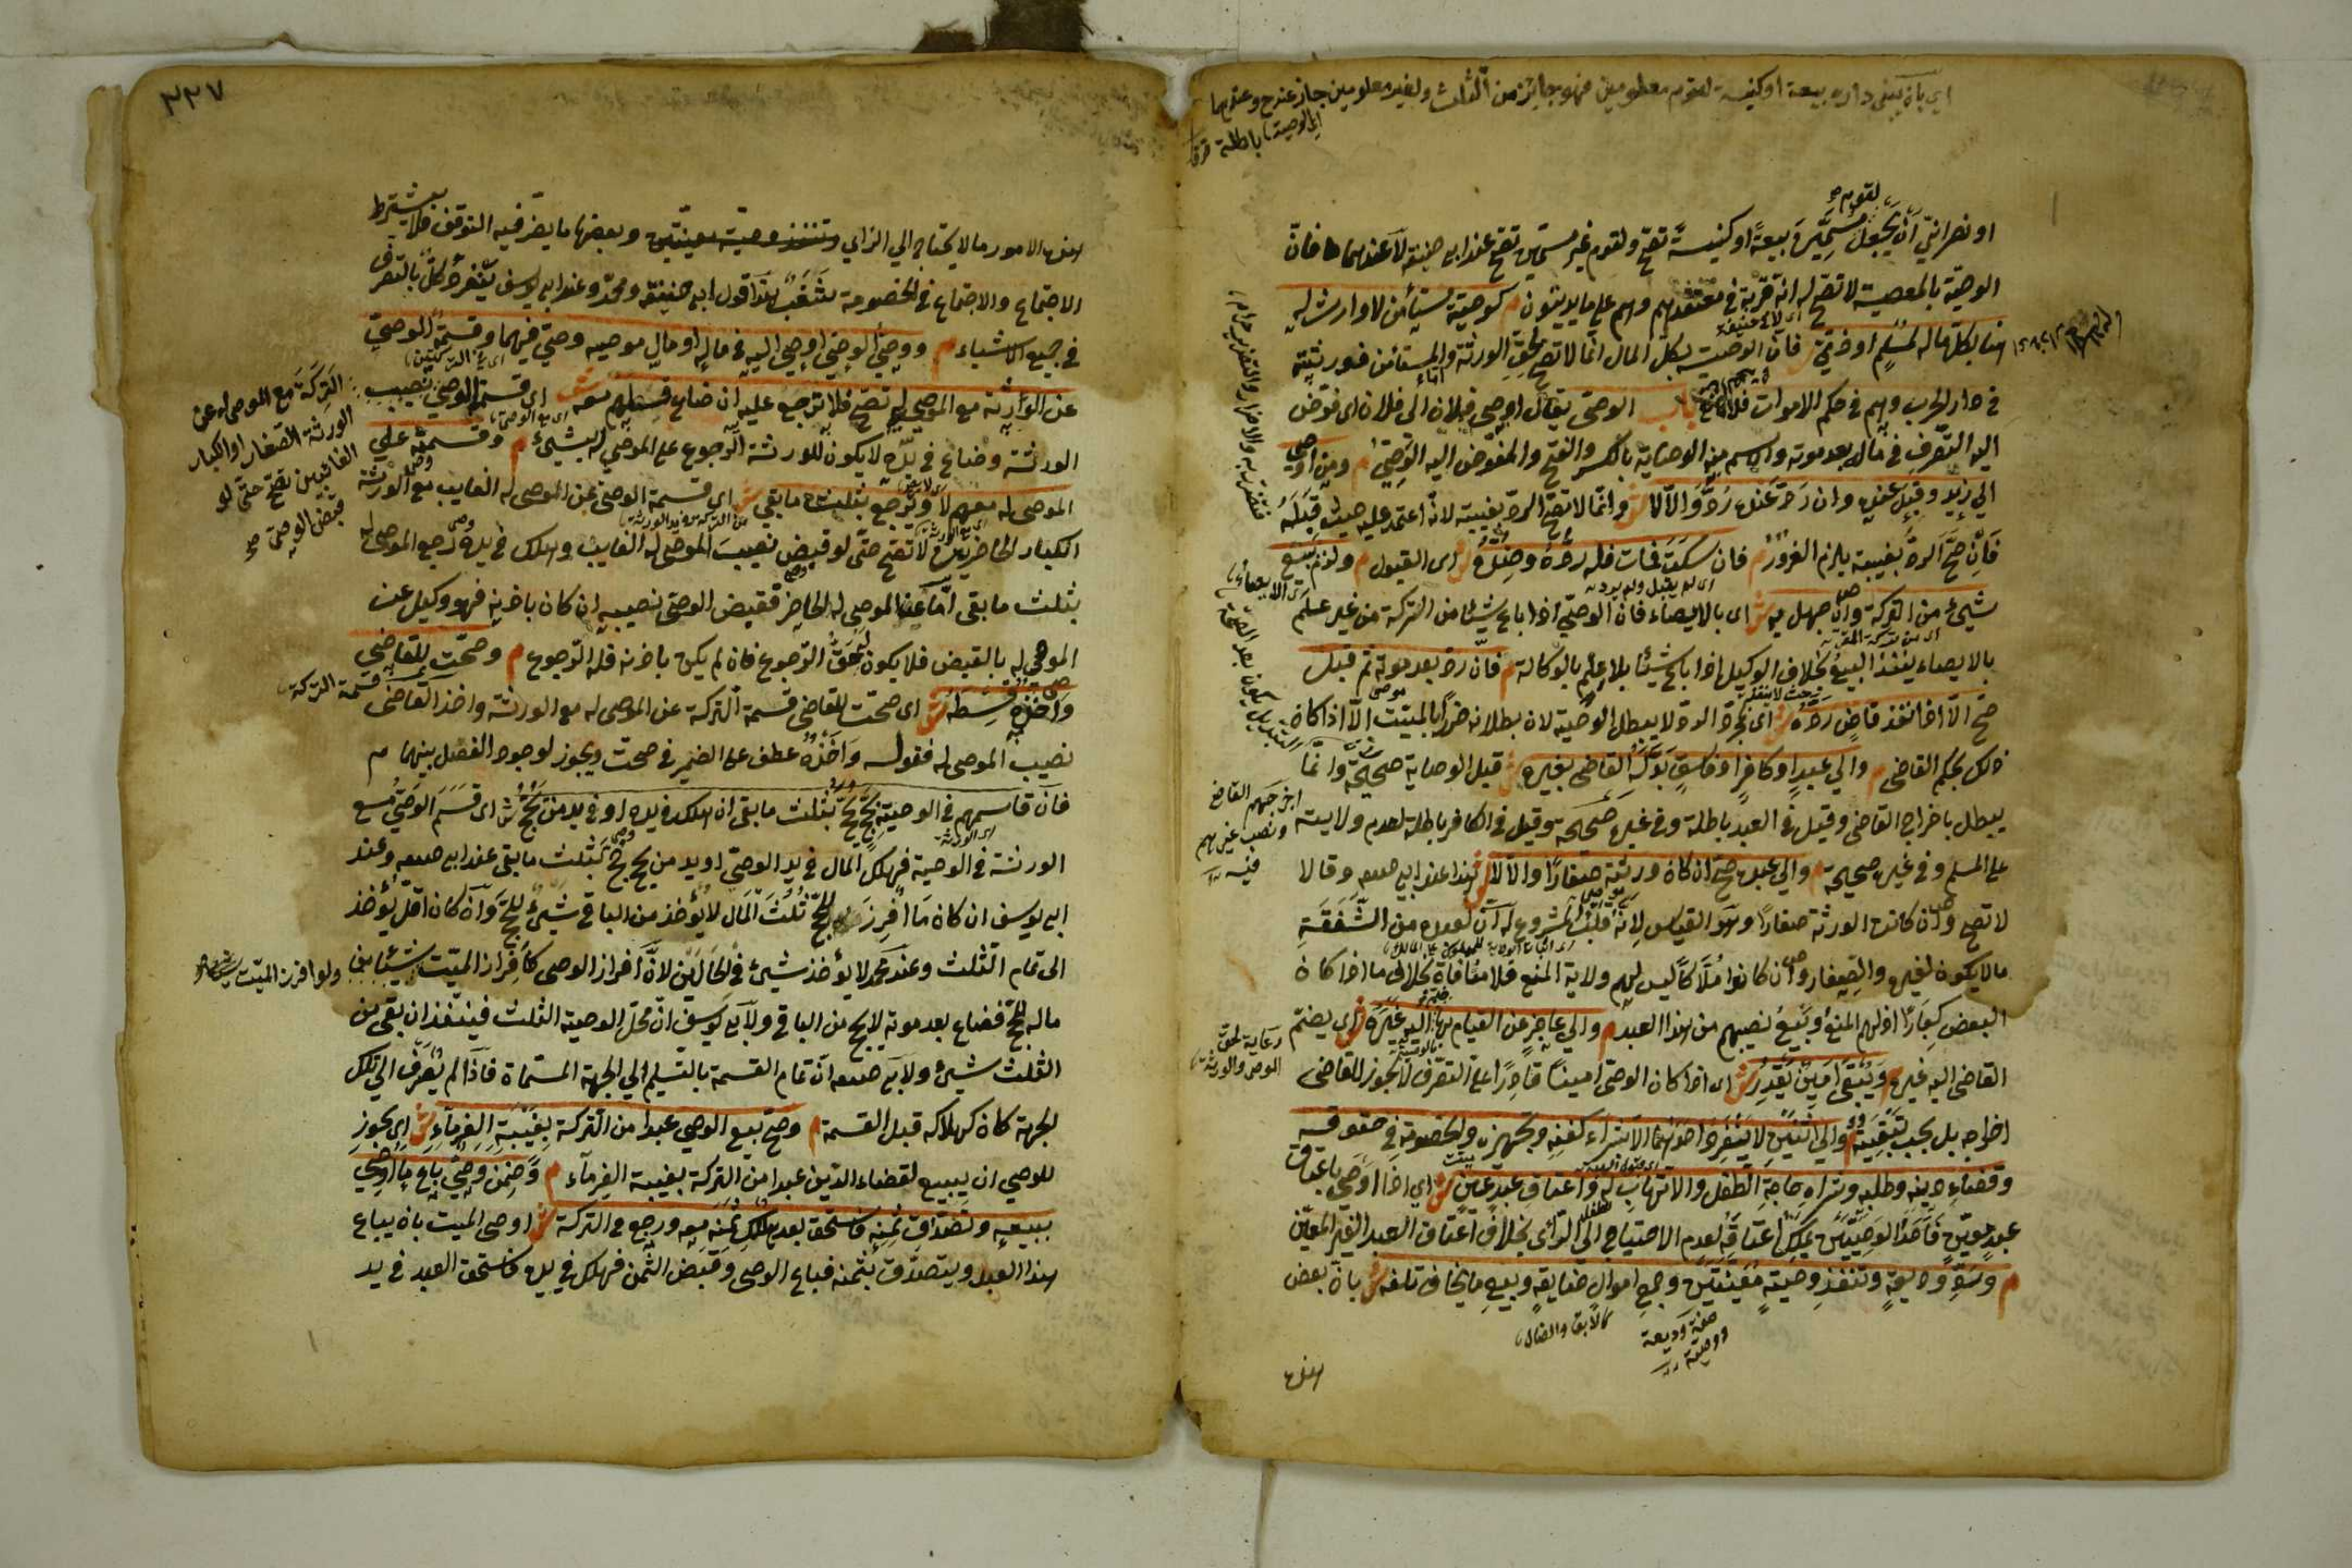 اي بان يبنى داره بيعة او كنيسة لقوم معلومين فهو جائز من الثلث ولغير معلومين جاز عند ح وعندهما
الوصية باطلة
لقوم
او نصراني ان يجعل مسمين بيعة او كنيسة تصح ولقوم غير مسمين تصح عند ابي حنيفة لا عندهما فان
الوصية بالمعصية لا تصح له انه قربة في معتقدهم وهم على ما يدينون م كوصية مستأمن لا وارث له
هنا بكل ماله لمسلم او ذمي ش فان الوصية بكل المال انما لا تصح لحق الورثة والمستأمن فورثته
في دار الحرب وهم في حكم الاموات فلا مانع باب الوصي يقال اوصى فلان الى فلان اى فوض
اليه التصرف في ماله بعد موته والاسم منه الوصاية بالكسر والفتح والمفوض اليه الوصي م ومن اوصى
الى زيد وقبل عنده وان رد عنده رد والا لا ش وانما لا يصح الرد بغيبته لانه اعتمد عليه حيث قبله
فان صح الرد بغيبته يلزم الغرور م فان سكت فمات فله رده وضده ش اى القبول م ولزم ببيع
اى لم يقبل ولم يرد
شئ من التركة وان جهل به ش اى بالايصاء فان الوصي اذا باع شيئا من التركة من غير علم
بالايصاء ينفذ البيع بخلاف الوكيل اذا باع شيئا بلا علم بالوكالة م فان رد بعد موته ثم قبل
صح الا اذا نفذ قاض رده ش اى بمجرد الرد لا يبطل الوصية لان بطلانه ضرر بالميت الا اذا كان
ذلك بحكم القاضى م والى عبد او كافر او فاسق بدله القاضى بغيره ش قيل الوصاية صحيحة وانما
يبطل باخراج القاضى وقيل في العبد باطلة وفي غيره صحيحة وقيل في الكافر باطلة لعدم ولايته
على المسلم وفي غيره صحيحة م والى عبده صح ان كان ورثته صغارا والا لا ش هذا عند ابي حنيفة وقالا
لا تصح وان كانت الورثة صغارا وهو القياس لانه قلب المشروع له ان لعبده من الشفقة
مالا يكون لغيره والصغار وان كانوا ملاكا ليس لهم ولاية المنع فلا منافاة بخلاف ما اذا كان
البعض كبارا اذ لهم المنع وبيع نصيبهم من هذا العبد م والى عاجز عن القيام بها ضم اليه غيره ش اى يضم
القاضى اليه غيره م ويبقى امين يقدر ش اى اذا كان الوصي امينا قادرا على التصرف لا يجوز للقاضى
اخراجه بل يجب تبقيته م والى اثنين لا ينفرد احدهما الا بشراء كفنه وتجهيزه والخصومة في حقوقه
وقضاء دينه وطلبه وشراء حاجة الطفل والاتهاب له واعتاق عبد عين ش اى اذا اوصى باعتاق
عبد معين فاحد الوصيين يملك اعتاقه لعدم الاحتياج الى الرأى بخلاف اعتاق العبد الغير المعين
م ورد وديعة وتنفيذ وصية معينتين وجمع اموال ضايعة وبيع ما يخاف تلفه ش بان بعض
كالابق والضال
صفة وديعة
ووصية
هذه
اخرجهم القاضي
ونصب غيرهم
رعاية لحق
الموصى والورثة
٣٣٧
هذه الامور مالا يحتاج الى الرأى وتنفيذ وصية معينتين وبعضها ما يضر فيه التوقف فلا يشترط
الاجتماع والاجتماع في الخصومة شغب هذا قول ابي حنيفة ومحمد وعند ابي يوسف ينفرد كل بالتصرف
في جميع الاشياء م ووصي الوصي اوصى اليه في ماله او مال موصيه وصي فيهما وقسمة الوصي
عن الورثة مع الموصى له تصح فلا ترجع عليه ان ضاع قسطهم معه ش اى قسمة الوصي نصيب
الورثة وضاع في يده لا يكون للورثة الرجوع على الموصى له بشئ م وقسمته على
الموصى له معهم لا ويرجع بثلث ما بقي ش اى قسمة الوصي عن الموصى له الغايب مع الورثة
الكبار الحاضرين لا تصح حتى لو قبض نصيب الموصى له الغايب وهلك في يده رجع الموصى له
بثلث ما بقى اما عن الموصى له الحاضر فقبض الوصي نصيبه ان كان باذنه فهو وكيل عن
الموصى له بالقبض فلا يكون له حق الرجوع فان لم يكن باذنه فله الرجوع م وصحت للقاضى
واخذه قسطه ش اى صحت للقاضى قسمة التركة عن الموصى له مع الورثة واخذ القاضى
نصيب الموصى له فقوله واخذه عطف على الضمير في صحت ويجوز لوجود الفصل بينهما م
فان قاسمهم في الوصية بحج حج بثلث ما بقى ان هلك في يده او في يد من يحج ش اى قسم الوصي مع
الورثة في الوصية فهلك المال في يد الوصي او يد من يحج حج بثلث ما بقى عند ابي حنيفة وعند
ابي يوسف ان كان ما افرز للحج ثلث المال لا يؤخذ من الباقي شئ للحج وان كان اقل يؤخذ
الى تمام الثلث وعند محمد لا يؤخذ شئ في الحالين لان افراز الوصي كافراز الميت شيئا من
ماله للحج فضاع بعد موته لا يحج من الباقي ولابي يوسف ان محل الوصية الثلث فينفذ ان بقى من
الثلث شئ ولابي حنيفة ان تمام القسمة بالتسليم الى الجهة المسماة فاذا لم يصرف الى تلك
الجهة كان كهلاكه قبل القسمة م وصح بيع الوصي عبدا من التركة بغيبة الغرماء ش اى يجوز
للوصي ان يبيع لقضاء الدين عبدا من التركة بغيبة الغرماء م وضمن وصي باع ما اوصى
ببيعه وتصدق ثمنه فاستحق بعد هلك ثمنه معه ورجع في التركة ش اوصى الميت بان يباع
هذا العبد ويتصدق بثمنه فباع الوصي وقبض الثمن فهلك في يده فاستحق العبد في يد
التركة مع الموصى له عن
الورثة الصغار او الكبار
الغائبين تصح حتى لو
قبض الوصي
قسمة التركة
ولو افرز الميت